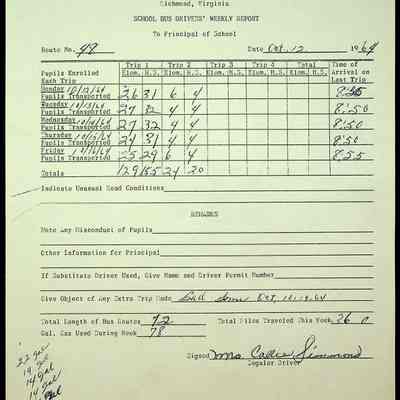 Richmond, Virginia
SCHOOL BUS DRIVERS' WEEKLY REPORT
To Principal of School
Route No. 48 Date Oct. 12 1964
Trip 1 Trip 2 Trip 3 Trip 4 Total Time of
Pupils Enrolled Elem. H.S. Elem. H.S. Elem. H.S. Elem. H.S. Elem. H.S. Arrival on
Each Trip Last Trip
Monday 10/12/64
Pupils Transported 26 31 6 4
Tuesday 10/13/64
Pupils Transported 27 32 4 4 8:50
Wednesday 10/14/64
Pupils Transported 27 32 4 4 8:50
Thursday 10/15/64
Pupils Transported 24 31 4 4 8:50
Friday 10/16/64
Pupils Transported 25 29 6 4 8:55
Totals 129 155 24 20
Indicate Unusual Road Conditions
REMARKS
Note Any Misconduct of Pupils
Other Information for Principal
If Substitute Driver Used, Give Name and Driver Permit Number
Give Object of Any Extra Trip Made Oct.
Total Length of Bus Routes 72 Total Miles Traveled This Week 360
Gal. Gas Used During Week 78
Signed Mrs. Callie Simmons
Regular Driver
22 gal
19 gal
14 gal
14 gal
gal